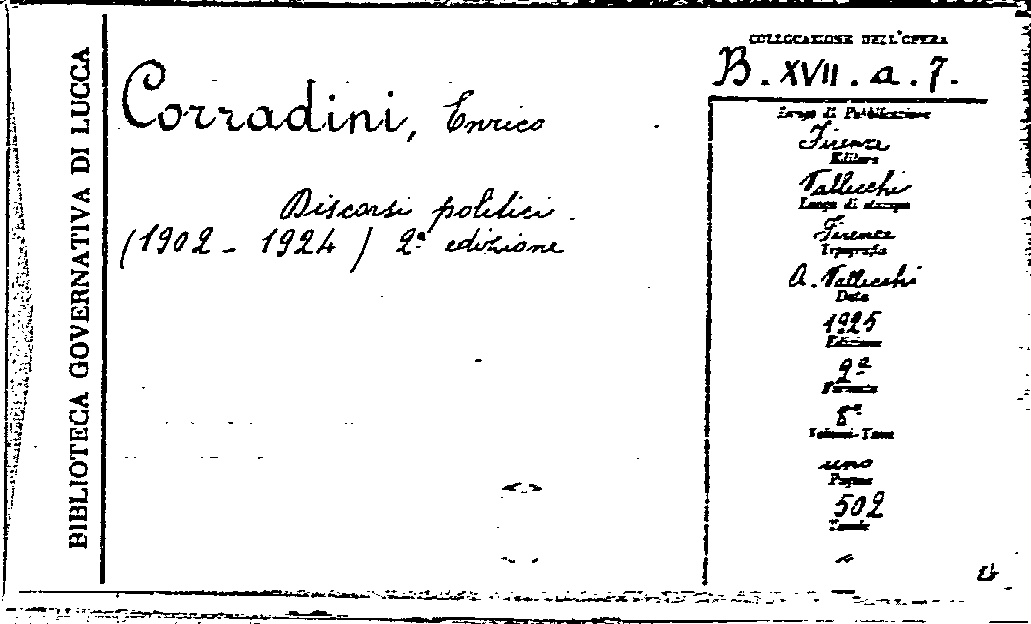 BIBLIOTECA GOVERNATIVA DI LUCCA
Corradini, Enrico
Discorsi politici
(1902 - 1924) 2ª edizione
COLLOCAZIONE DELL'OPERA
B. XVII. a. 7.
Luogo di Pubblicazione
Firenze
Editore
Vallecchi
Luogo di stampa
Firenze
Tipografia
A. Vallecchi
Data
1925
Edizione
2ª
Formato
8º
Volumi-Tomi
uno
Pagine
502
Tavole